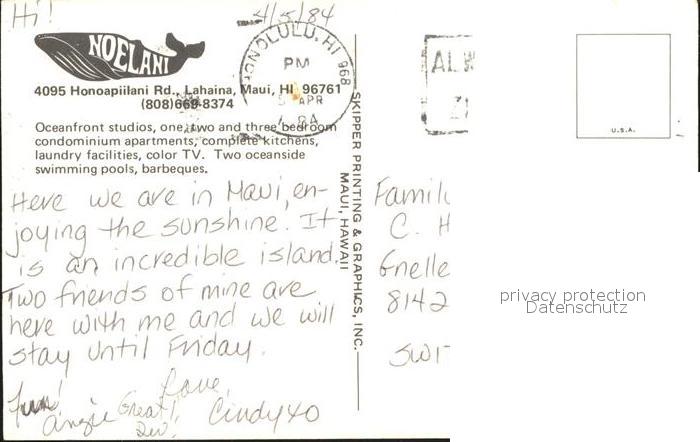 Hi!
4/5/84
NOELANI
4095 Honoapiilani Rd., Lahaina, Maui, HI 96761
(808)669-8374
Oceanfront studios, one, two and three bedroom
condominium apartments, complete kitchens,
laundry facilities, color TV. Two oceanside
swimming pools, barbeques.
HONOLULU, HI 968
PM
5 APR
U.S.A.
SKIPPER PRINTING & GRAPHICS, INC.
MAUI, HAWAII
Here we are in Maui, en-
joying the sunshine. It
is an incredible island.
Two friends of mine are
here with me and we will
stay until Friday.
Love,
Cindy xo
Fun!
Angie
Great!
Famil
C. H
Gnelle
8142
SWI
privacy protection
Datenschutz